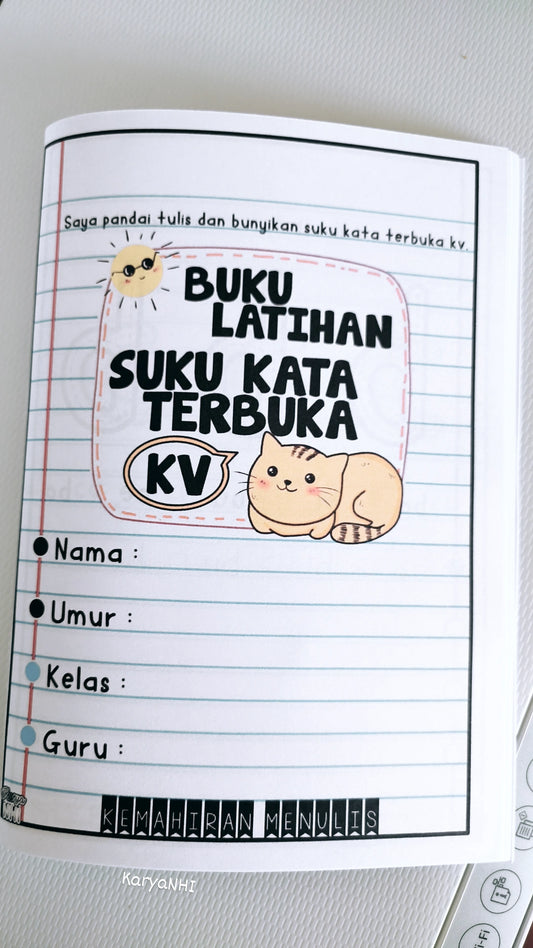 Saya pandai tulis dan bunyikan suku kata terbuka kv.
BUKU
LATIHAN
SUKU KATA
TERBUKA
KV
Nama :
Umur :
Kelas :
Guru :
KEMAHIRAN MENULIS
KaryaNHI